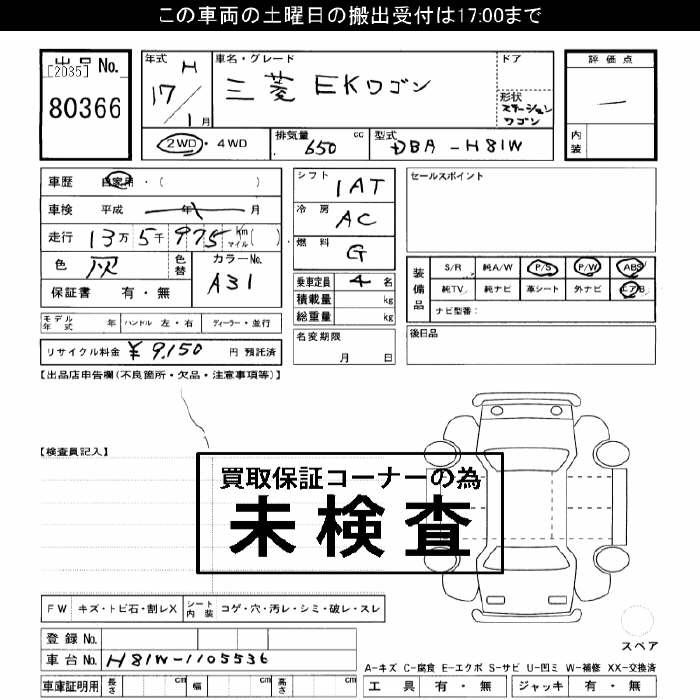 この車両の土曜日の搬出受付は17:00まで
出品 No.
[2035]
80366
年式 H
17/1月
車名・グレード
三菱 EKワゴン
ドア
形状
ステーション
ワゴン
評価点
内装
2WD・4WD
排気量 650 cc
型式 DBA-H81W
車歴 自家用・( )
車検 平成 年 月
走行 13万5千975 km マイル( )
色 灰
色替
カラーNo.
A31
保証書 有・無
シフト
IAT
冷房
AC
燃料
G
乗車定員 4名
積載量 kg
総重量 kg
セールスポイント
装備品
S/R 純A/W P/S P/W ABS
純TV 純ナビ 革シート 外ナビ エアB
ナビ型番:
モデル年式 年 ハンドル 左・右 ディーラー・並行
名変期限
月 日
後日品
リサイクル料金 ¥9,150 円 預託済
【出品店申告欄(不良箇所・欠品・注意事項等)】
【検査員記入】
買取保証コーナーの為
未検査
FW キズ・トビ石・割レX シート内装 コゲ・穴・汚レ・シミ・破レ・スレ
スペア
登録No.
車台No. H81W-1105536
A-キズ C-腐食 E-エクボ S-サビ U-凹ミ W-補修 XX-交換済
車庫証明用 長さ cm 幅 cm 高さ cm
工具 有・無 ジャッキ 有・無